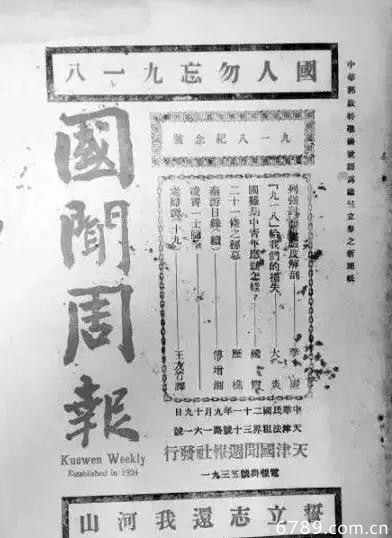 國人勿忘九一八
中華郵政特准掛號認為總包立券之新聞紙
九一八紀念號
列強 態度解剖 李
「九一八」給我們的損失 大炎
國難期中青年應該怎樣？
二十一條之秘幕 歷樵
秦游日錄(續) 傅增湘
凌霄一士隨筆
老婦譚(十九) 王
國聞周報
Kuowen Weekly
Established in 1924
中華民國二十一年九月十九日
天津法租界三十號路一六一號
天津國聞週報社發行
電報掛號五三九一
誓立志還我河山
6789.com.cn